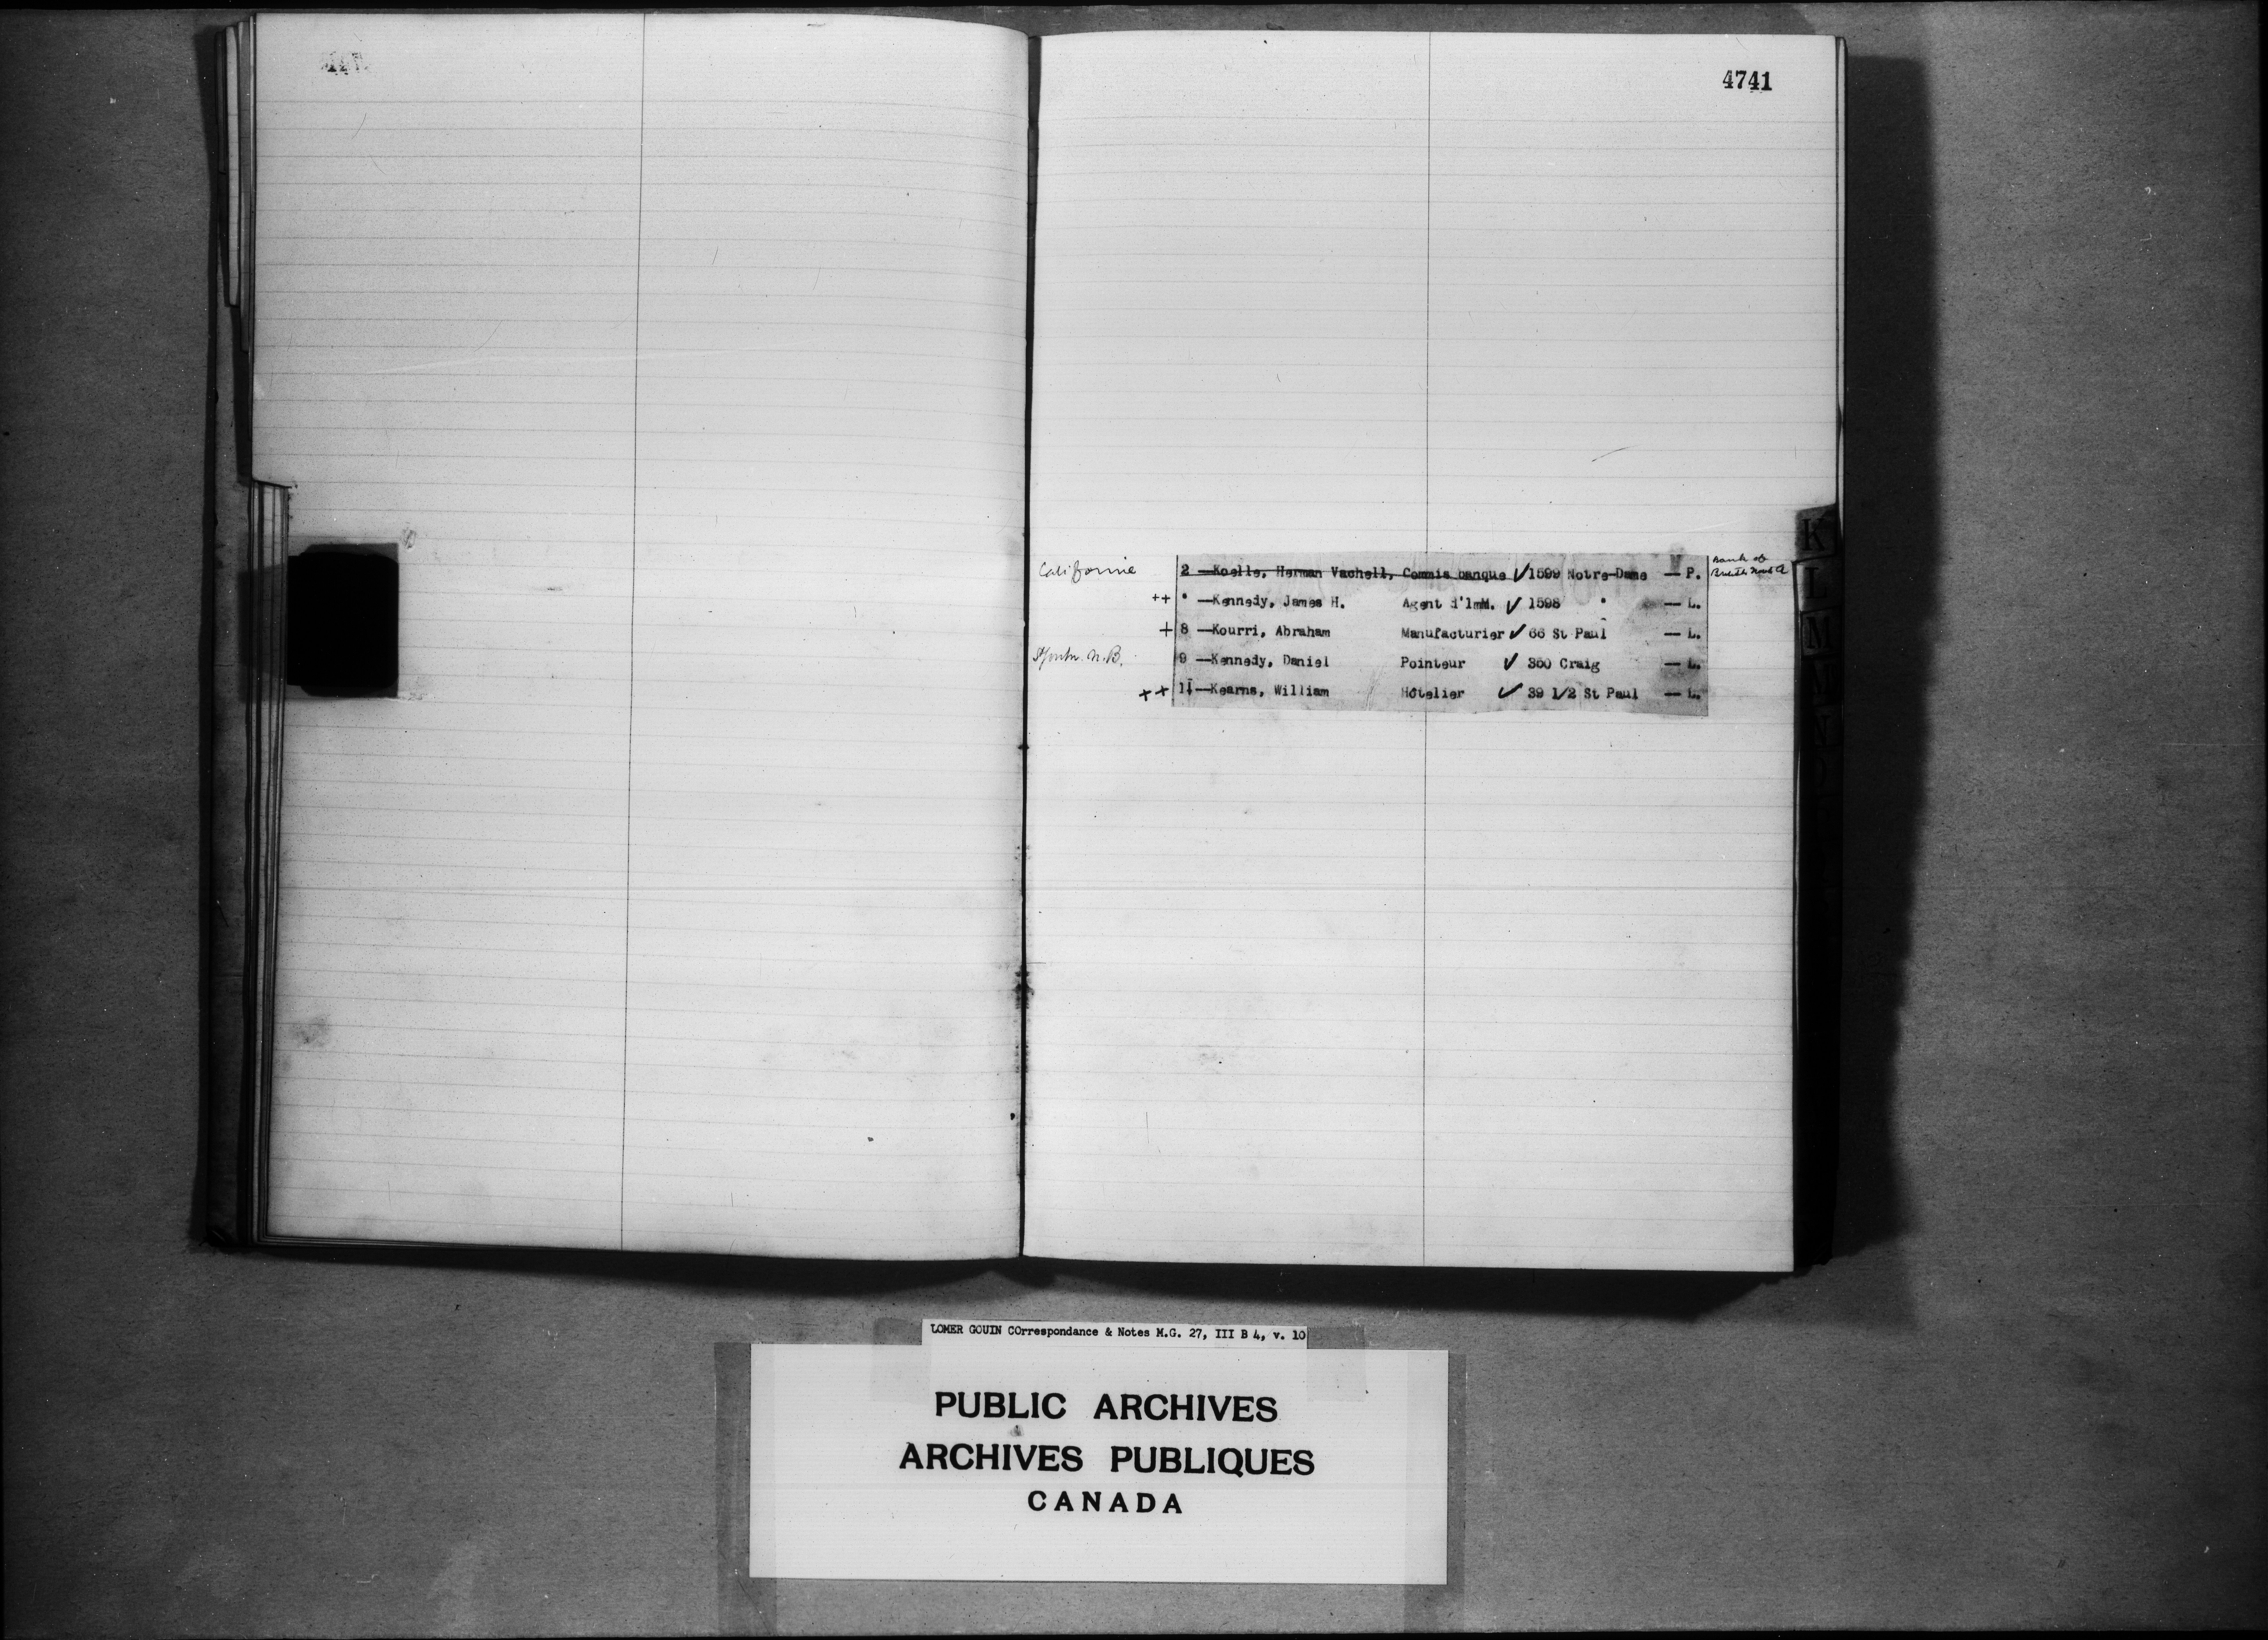 4741
K
Californie 2 — Koelle, Herman Vachell, Commis banque ✓ 1599 Notre-Dame — P. Bank of
British North A
++ " — Kennedy, James H. Agent d'imM. ✓ 1598 " — L.
L
+ 8 — Kourri, Abraham Manufacturier ✓ 66 St Paul — L.
M
N.B. 9 — Kennedy, Daniel Pointeur ✓ 360 Craig — L.
++ 11 — Kearns, William Hôtelier ✓ 39 1/2 St Paul — L.
N
LOMER GOUIN COrrespondance & Notes M.G. 27, III B 4, v. 10
PUBLIC ARCHIVES
ARCHIVES PUBLIQUES
CANADA